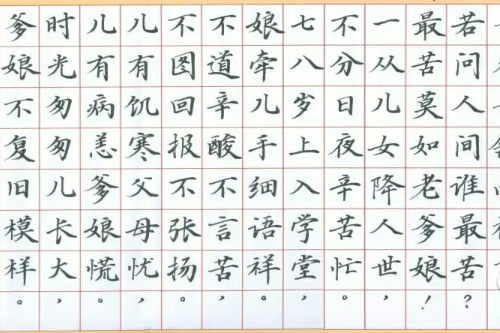 若问人间谁最苦？
最苦莫如老爹娘！
一从儿女降人世，
不分日夜辛苦忙。
七八岁上入学堂，
娘牵儿手细语祥。
不道辛酸不言苦，
不图回报不张扬。
儿有饥寒父母忧，
儿有病恙爹娘慌。
时光匆匆儿长大，
爹娘不复旧模样。